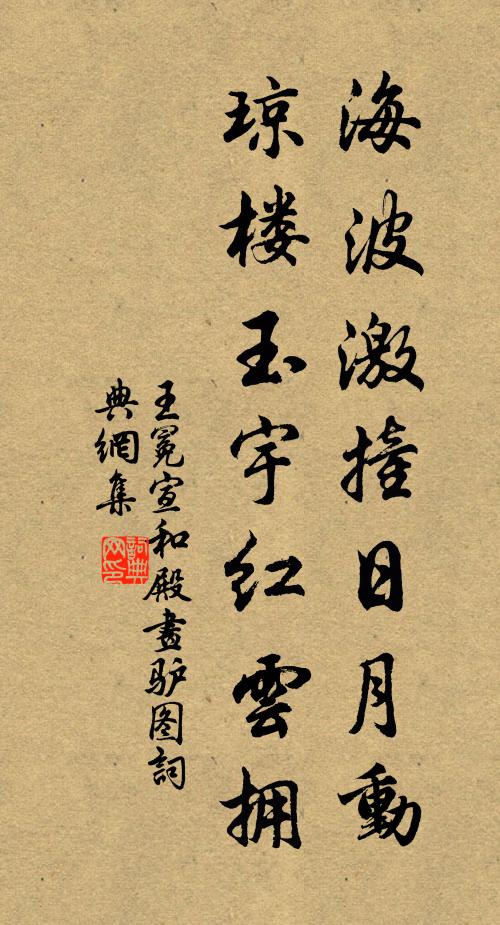 海波激撞日月動
琼楼玉宇红雲拥
王冕宣和殿畫驴图詞
典網集
詞典
网印